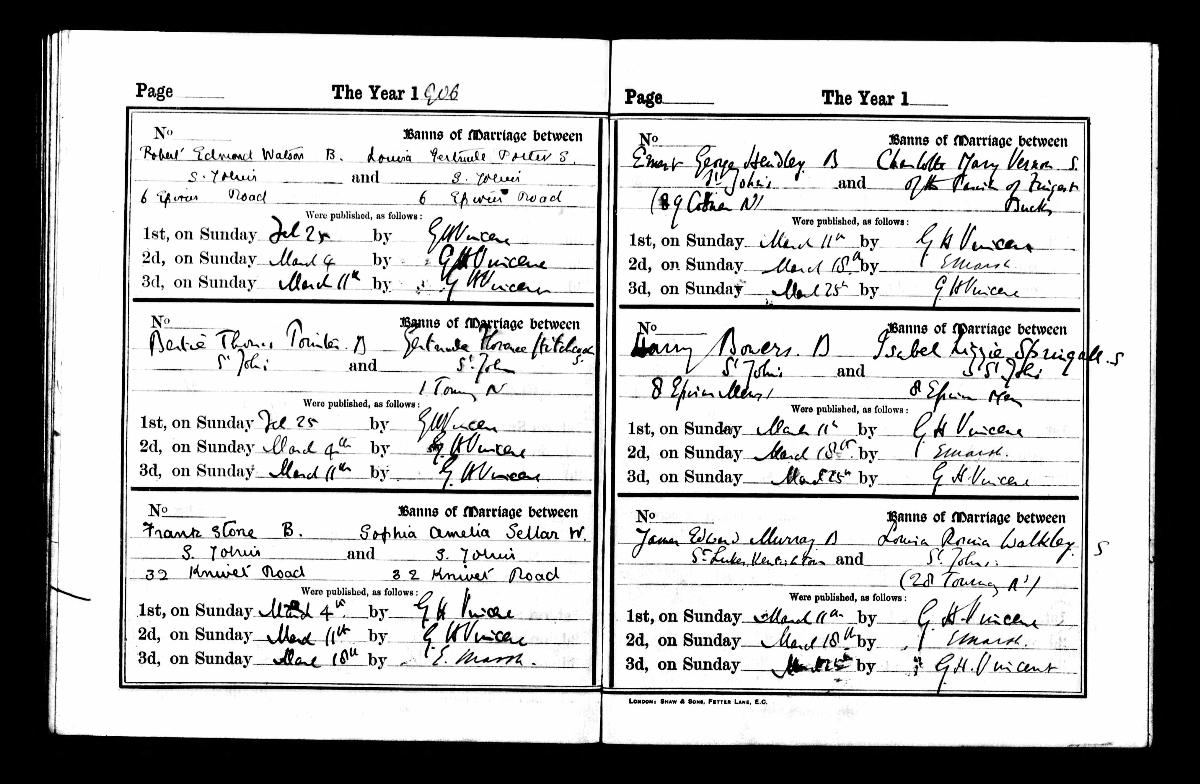 Page
The Year 1906
No
Banns of Marriage between
Robert Edmond Watson B. Louisa Gertrude Porter S.
S. John's and S. John's
6 Epirus Road 6 Epirus Road
Were published, as follows:
1st, on Sunday Feb 25 by G H Vincent
2d, on Sunday March 4 by G H Vincent
3d, on Sunday March 11th by G H Vincent
No
Banns of Marriage between
Bertie Thomas Pointer B Gertrude Florence Hitchcock S.
St John's and St John
1 Tournay Rd
Were published, as follows:
1st, on Sunday Feb 25 by G H Vincent
2d, on Sunday March 4th by G H Vincent
3d, on Sunday March 11th by G. H Vincent
No
Banns of Marriage between
Frank Stone B. Sophia Amelia Sellar W.
S. John's and S. John's
32 Knivet Road 32 Knivet Road
Were published, as follows:
1st, on Sunday March 4th by G H Vincent
2d, on Sunday March 11th by G H Vincent
3d, on Sunday March 18th by E. Marsh.
Page
The Year 1
No
Banns of Marriage between
Ernest George Hendley B Charlotte Mary Vernon S.
St John's and of the Parish of Fingest
(89 Rd) Bucks
Were published, as follows:
1st, on Sunday March 11th by G H Vincent
2d, on Sunday March 18th by E Marsh.
3d, on Sunday March 25th by G H Vincent
No
Banns of Marriage between
Harry Bowers. B Isabel Lizzie Springall. S
St John's and St John's
8 Epirus Mews 8 Epirus Mews
Were published, as follows:
1st, on Sunday March 11th by G H Vincent
2d, on Sunday March 18th by E Marsh.
3d, on Sunday March 25th by G. H. Vincent
No
Banns of Marriage between
James Edward Murray B Louisa Rosina Walkley. S
St Lukes Kensington and St. John's
(28 Tournay Rd)
Were published, as follows:
1st, on Sunday March 11th by G. H. Vincent
2d, on Sunday March 18th by E Marsh.
3d, on Sunday March 25th by G. H. Vincent
London: Shaw & Sons, Fetter Lane, E.C.